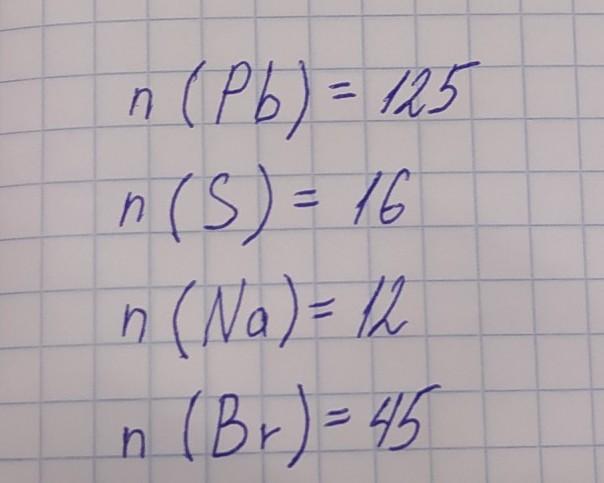 n (Pb) = 125
n (S) = 16
n (Na) = 12
n (Br) = 45